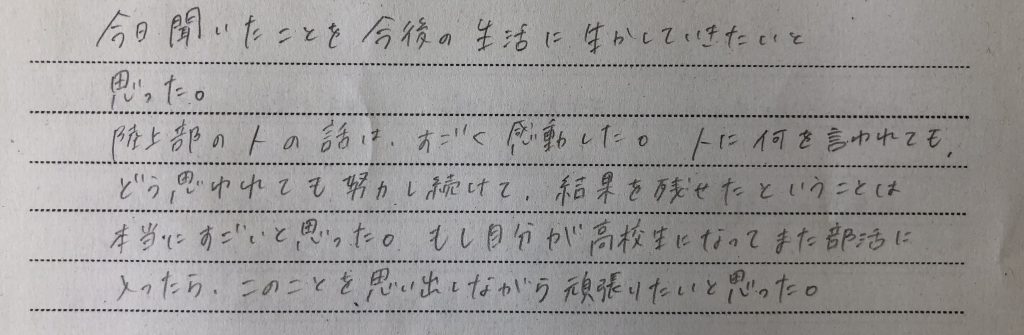 今日聞いたことを今後の生活に生かしていきたいと
思った。
陸上部の人の話は、すごく感動した。人に何を言われても、
どう思われても努力し続けて、結果を残せたということは
本当にすごいと思った。もし自分が高校生になってまた部活に
入ったら、このことを思い出しながら頑張りたいと思った。